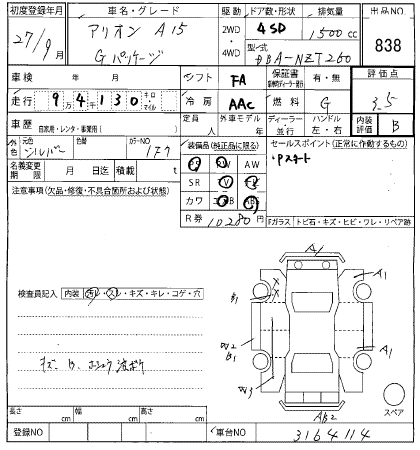 初度登録年月 車名・グレード 駆動 ドア数・形状 排気量 出品NO
27/9月 アリオン A15 2WD 4SD 1500cc 838
Gパッケージ 4WD 型式 DBA-NZT260
車検 年 月 シフト FA 保証書 有・無 評価点
走行 9万4千130 キロ マイル 冷房 AAC 燃料 G 3.5
車歴 自家用・レンタ・事業用( ) 定員 人 外車モデル 年 ディーラー・並行 ハンドル 左・右 内装評価 B
外色 元色 シルバー 色替 カラーNO 1F7 装備品(純正品に限る) セールスポイント(正常に作動するもの)
名義変更期限 月 日迄 積載 t PS PW AW ・Pスタート
注意事項(欠品・修復・不具合箇所および状態) SR TV ナビ
カワ エアB ABS
R券 10280円 Fガラス トビ石・キズ・ヒビ・ワレ・リペア跡
A1
A1
B1
検査員記入 内装 汚レ・スレ・キズ・キレ・コゲ・穴
W2
B1
A1
W3
AB2
スペア
長さ cm 幅 cm 高さ cm
登録NO 車台NO 3164114